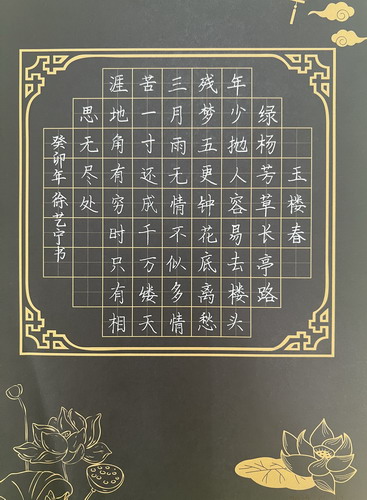 玉楼春
绿杨芳草长亭路
年少抛人容易去楼头
残梦五更钟花底离愁
三月雨无情不似多情
苦一寸还成千万镂天
涯地角有穷时只有相
思无尽处
癸卯年徐艺宁书